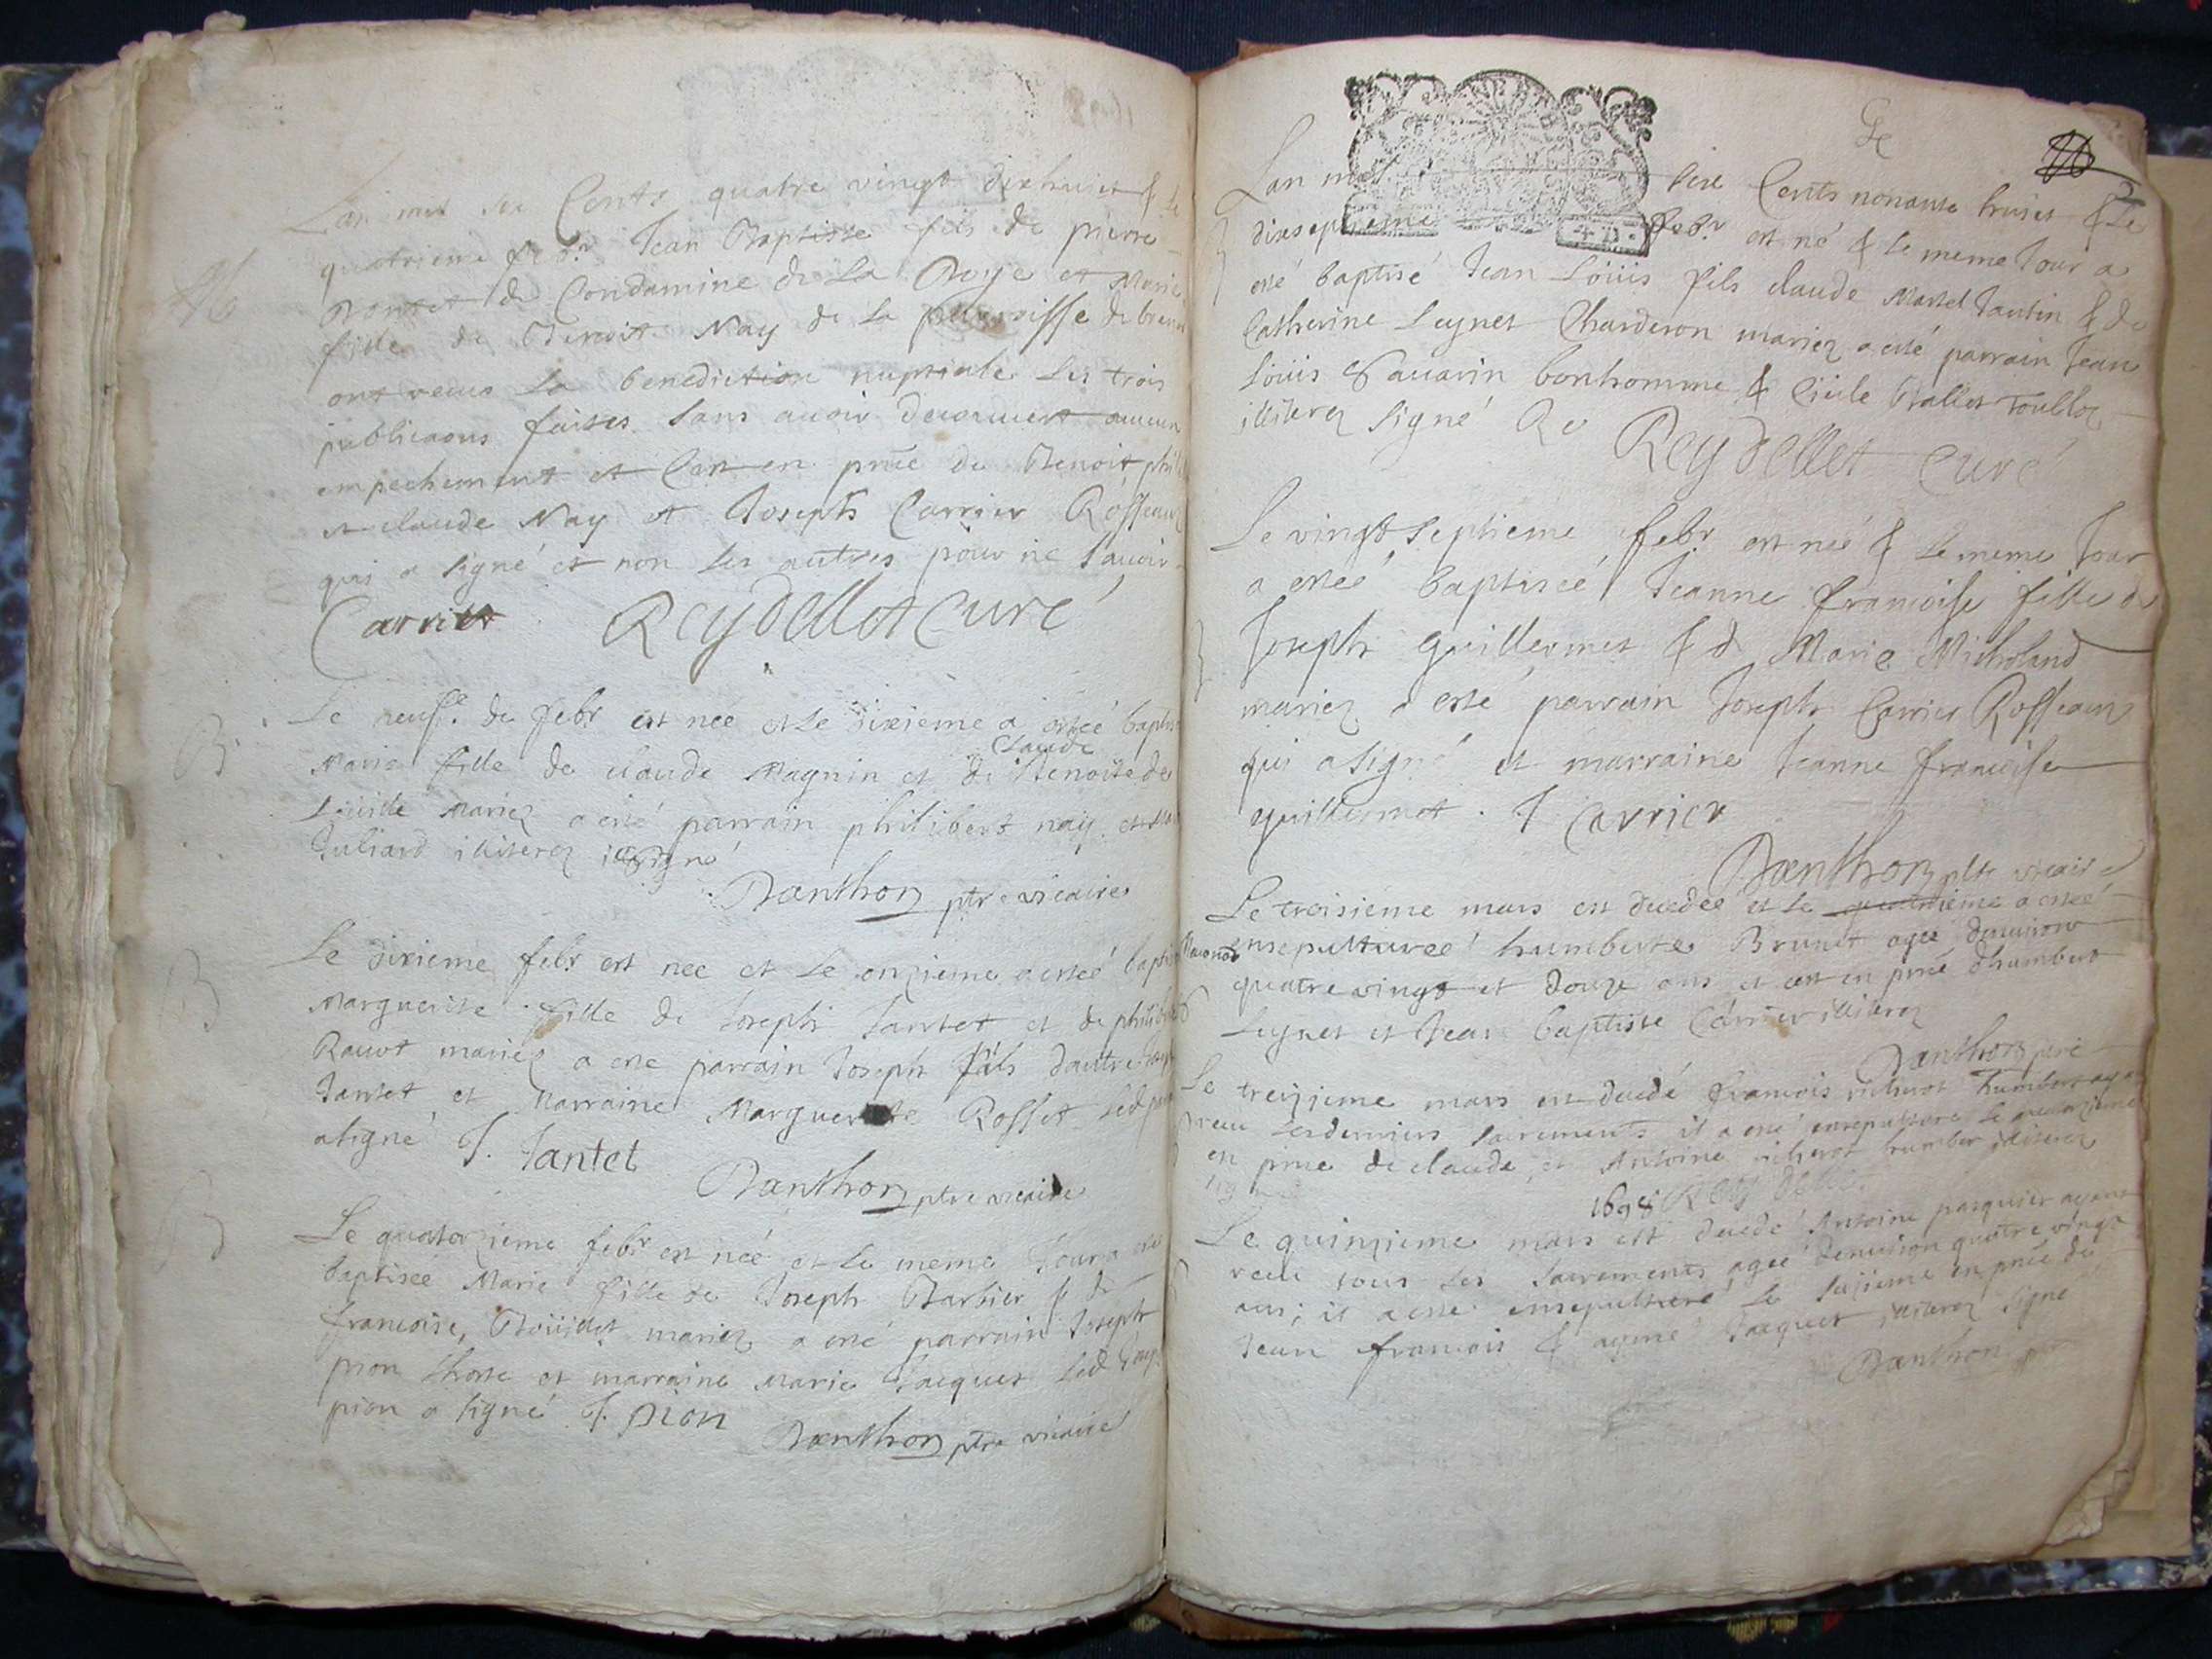 Lan mil six Cents quatre vingt dixhuict & le
quatrieme febr. Jean Baptiste fils de pierre
de Condamine de La Doye et Marie
fille de Benoit Nay de la parroisse de
ont receus la benediction nuptiale les trois
publicaons faites sans avoir decouvert aucun
empechement et Cest en pnce de Benoit
et claude Nay et Joseph Carrier Rosseaux
qui a signé et non les autres pour ne scavoir
Carrier Reydellet Curé
B
Le neufe. de febr est née et le dixieme a estéé
claude
Maria fille de claude Magnin et de Benoite de
mariez a esté parrain philibert nay et
Juliard illiterez
Danthon ptre vicaire
B
Le dixieme febr. est nee et Le onzieme a estéé
Marguerite fille de Joseph Jantet et de
Ravot mariez a esté parrain Joseph fils dautre
Jantet et Marraine Marguerite Rosset Led
asigné J. Jantet
Danthon ptre vicaire
B
Le quatorzieme febr est néé et le meme Jour a
baptisee Marie fille de Joseph Barbier & de
francoise, Boüillet mariez a esté parrain Joseph
pion et marraine Marie Jacquet Led
pion a signé J. pion
Danthon ptre vicaire
Lan mil sixe Cents nonante huict & Le
dixseptieme febr. est né & le meme Jour a
esté baptisé Jean Loüis fils claude Martel Tantin & de
Catherine Leynet Charderon mariez a esté parrain Jean
Loüis Savarin bonhomme & Ballet
illiterez signé
Reydellet Curé
Le vingt septieme febr est néé & Le meme Jour
a estéé baptiséé Jeanne francoise fille de
Joseph guillermet & d Marie Micholand
mariez a esté parrain Joseph Carrier Rosseaux
qui asigné et marraine Jeanne francoise
guillermet. J Carrier
Danthon ptre vicaire
Le troisieme mars est decedéé et le quatrieme a estéé
ensepulturéé humberte Brunet agéé denviron
quatre vingt et douze ans et cest en pnce dhumbert
Leynet et Jean baptiste Carrier illiterez
Danthon ptre
Le treizieme mars est decedé francois richerot humbert
receu les derniers sacrements il a esté ensepulturé le
en pnce de claude, et Antoine richerot humber illiterez
1698 Reydellet
Le quinzieme mars est decedé Antoine pasquier ayant
receu tous les sacrements agéé denviron quatre vingt
ans; il a esté ensepulturé le seizieme en pnce de
Jean francois & Jacquet illiterez signé
Danthon ptre